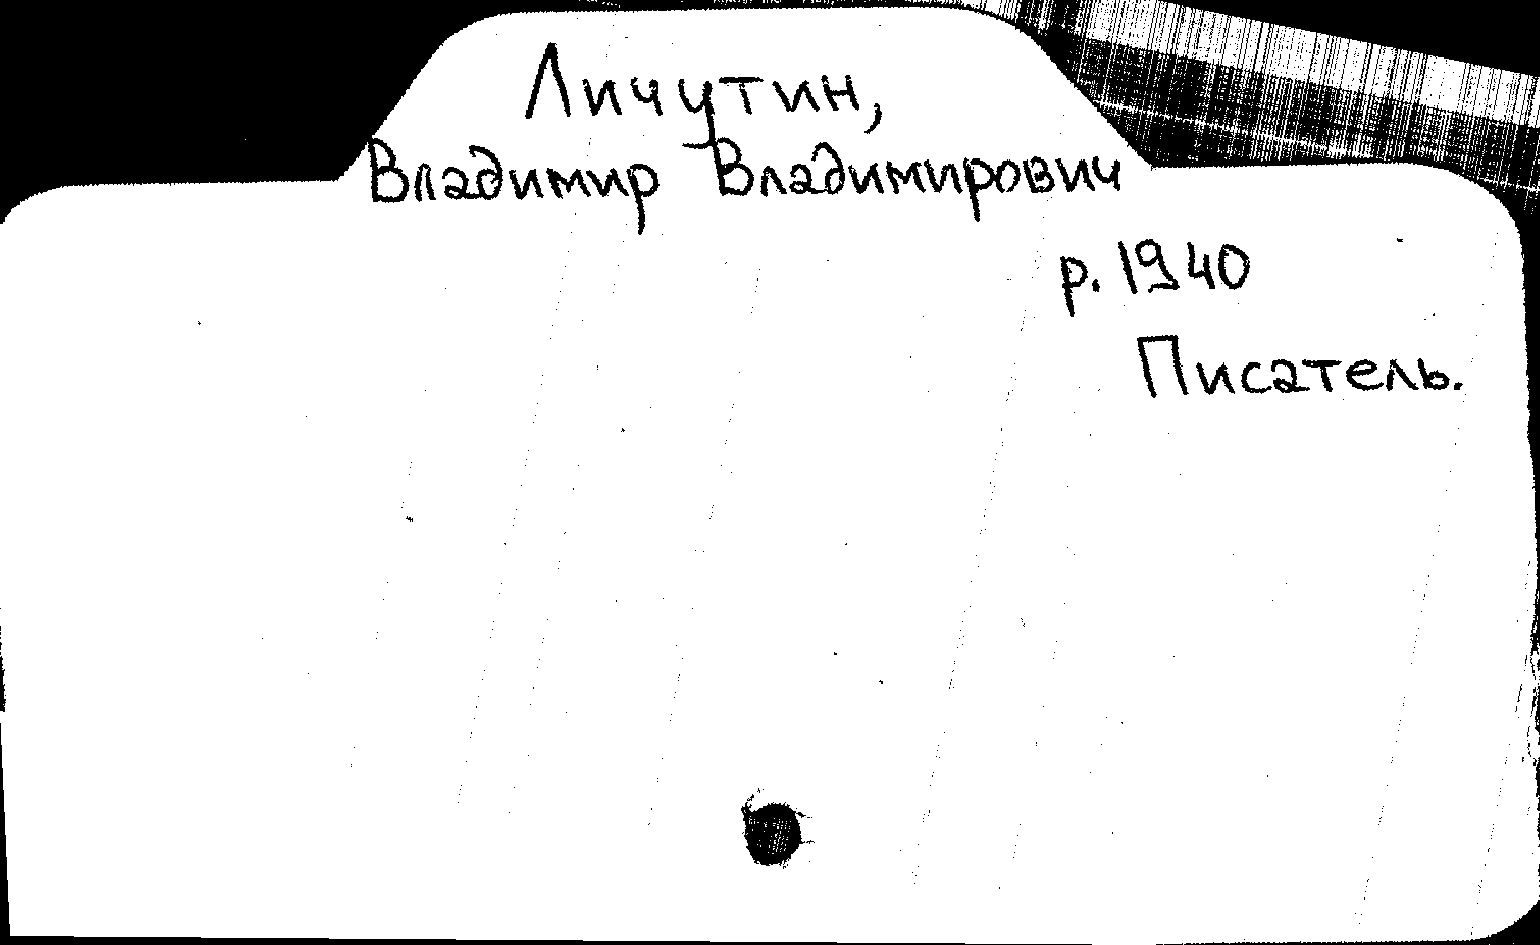 Личутин,
Владимир Владимирович
р. 1940
Писатель.